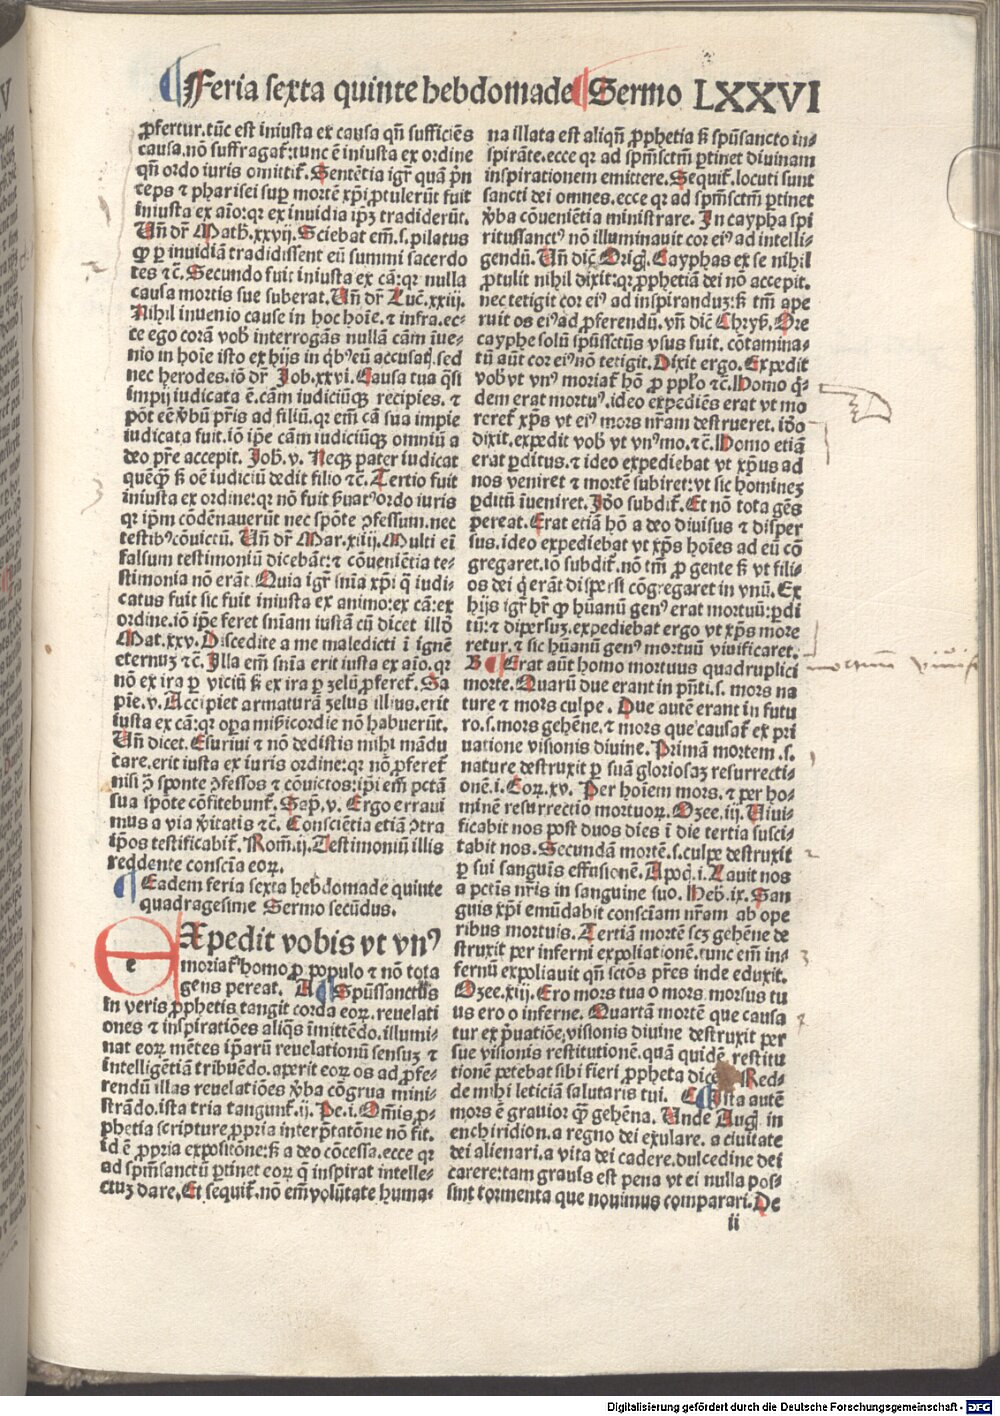 Feria sexta quinte hebdomade Sermo LXXVI
ꝓfertur.tūc est iniusta ex causa qn̄ sufficiēs
causa.nō suffragat᷑:tunc ē iniusta ex ordine
qn̄ ordo iuris omittit᷑. Sentētia igr̄ quā pn̄
ceps ⁊ pharisei suꝑ mortē xp̄i ꝓtulerūt fuit
iniusta ex aīo:qr ex inuidia ip̄ꝫ tradiderūt.
Un̄ dr̄ Math̄.xxvij. Sciebat em̄.s.pilatus
ꝙ ꝑ inuidiā tradidissent eū summi sacerdo
tes ⁊c̄. Secundo fuit iniusta ex cā:qr nulla
causa mortis sue suberat. Un̄ dr̄ Luc̄.xxiij.
Nihil inuenio cause in hoc hoīe.⁊ infra.ec-
ce ego corā vob̄ interrogās nullā cām īue-
nio in hoīe isto ex hijs in q̄bꝰ eū accusat᷑.sed
nec herodes.iō dr̄ Iob.xxvi. Causa tua q̄si
impij iudicata ē.cām iudiciūqꝫ recipies. ⁊
pōt eē v̄bū pr̄is ad filiū.qr em̄ cā sua impie
iudicata fuit.iō ip̄e cām iudiciūqꝫ omniū a
deo pr̄e accepit. Ioh̄.v. Neqꝫ pater iudicat
quēqꝫ s̄ oē iudiciū dedit filio ⁊c̄. Tertio fuit
iniusta ex ordine:qr nō fuit s̄uatꝰ ordo iuris
qr ip̄m cōdēnauerūt nec spōte ꝯfessum.nec
testibꝰ cōuictū. Un̄ dr̄ Mar.xiiij. Multi eī
falsum testimoniū dicebāt:⁊ cōueniētia te-
stimonia nō erāt. Quia igr̄ sn̄ia xp̄i q̄ iudi-
catus fuit sic fuit iniusta ex animo:ex cā:ex
ordine.iō ip̄e feret sn̄iam iustā cū dicet illō
Mat.xxv. Discedite a me maledicti ī ignē
eternuꝫ ⁊c̄. Illa em̄ sn̄ia erit iusta ex aīo.qr
nō ex ira ꝑ viciū s̄ ex ira ꝑ zelū ꝓferet᷑. Sa
pie.v. Accipiet armaturā zelus illius.erit
iusta ex cā:qr oꝑa mis̄icordie nō habuerūt.
Un̄ dicet. Esuriui ⁊ nō dedistis mihi mādu
care.erit iusta ex iuris ordine:qr nō ꝓferet᷑
nisi ꝯ̄ sponte ꝯfessos ⁊ cōuictos:ip̄i em̄ pctā
sua spōte cōfitebunt᷑. Sap̄.v. Ergo erraui
mus a via v̄itatis ⁊c̄. Consciētia etiā ꝯtra
ip̄os testificabit᷑. Rom̄.ij. Testimoniū illis
reddente conscīa eoꝝ.
Eadem feria sexta hebdomade quinte
quadragesime Sermo secūdus.
Expedit vobis vt vnꝰ
moriat᷑ homo ꝓ populo ⁊ nō tota
gens pereat. A Spūssanctus
in veris ꝓphetis tangit corda eoꝝ.reuelati
ones ⁊ inspiratiōes aliq̄s īmittēdo.illumi-
nat eoꝝ mētes ip̄arū reuelationū sensuꝫ ⁊
intelligētiā tribuēdo.aperit eoꝝ os ad ꝓfe-
rendū illas reuelatiōes v̄ba cōgrua mini-
strādo.ista tria tangunt᷑.ij. Pe.i. Om̄is ꝓ-
phetia scripture ꝓpria interp̄tatōne nō fit.
id ē ꝓpria expositōne:s̄ a deo cōcessa.ecce qr
ad spm̄sanctū ꝑtinet eoꝝ q̄ inspirat intelle-
ctuꝫ dare. Et sequit᷑.nō em̄ volūtate huma-
na illata est aliqn̄ ꝓphetia s̄ spūsancto in-
spirāte.ecce qr ad spm̄sctm̄ ꝑtinet diuinam
inspirationem emittere. Sequit᷑.locuti sunt
sancti dei omnes.ecce qr ad spm̄sctm̄ ꝑtinet
v̄ba cōueniētia ministrare. In caypha spi
ritussanctꝰ nō illuminauit cor eiꝰ ad intelli-
gendū. Un̄ dic̄ Oriḡ. Cayphas ex se nihil
ꝓtulit nihil dixit:qr ꝓphetiā dei nō accepit.
nec tetigit cor eiꝰ ad inspiranduꝫ:s̄ tm̄ ape
ruit os eiꝰ ad ꝓferendū.vn̄ dic̄ Chryſ. Ore
cayphe solū spūssctūs vsus fuit. cōtamina-
tū aūt cor eiꝰ nō tetigit. Dixit ergo. Expedit
vob̄ vt vnꝰ moriat᷑ hō ꝓ pplo ⁊c̄. Homo q̄-
dem erat mortuꝰ.ideo expediēs erat vt mo
reret᷑ xp̄s vt eiꝰ mors nr̄am destrueret. iō
dixit.expedit vob̄ vt vnꝰ mo.⁊c̄. Homo etiā
erat ꝑditus.⁊ ideo expediebat vt xp̄us ad
nos veniret ⁊ mortē subiret:vt sic hominеꝫ
ꝑditū īueniret. Iō subdit᷑. Et nō tota gēs
pereat. Erat etiā hō a deo diuisus ⁊ disper
sus.ideo expediebat vt xp̄s hoīes ad eū cō
gregaret.iō subdit᷑.nō tm̄ ꝓ gente s̄ vt fili-
os dei q̄ erāt dispersi cōgregaret in vnū. Ex
hijs igr̄ hr̄ ꝙ hūanū genꝰ erat mortuū:ꝑdi
tū:⁊ dipersuꝫ.expediebat ergo vt xp̄s more
retur.⁊ sic hūanū genꝰ mortuū viuificaret.
B Erat aūt homo mortuus quadruplici
morte. Quarū due erant in pn̄ti.s. mors na
ture ⁊ mors culpe. Due autē erant in futu
ro.s.mors gehēne.⁊ mors que causat᷑ ex pri
uatione visionis diuine. Primā mortem .s.
nature destruxit ꝑ suā gloriosaꝫ resurrecti-
onē.i. Coꝝ.xv. Per hoīem mors.⁊ per ho-
minē resurrectio mortuoꝝ. Ozee.iij. Uiui-
ficabit nos post duos dies ī die tertia susci-
tabit nos. Secundā mortē.s.culpe destruxit
ꝑ sui sanguis effusionē. Apoc̄.i. Lauit nos
a pctīs nr̄is in sanguine suo. Heb̄.ix. San
guis xp̄i emūdabit consc̄iam nr̄am ab ope
ribus mortuis. Tertiā mortē scꝫ gehēne de
struxit per inferni expoliationē.tunc em̄ in-
fernū expoliauit qn̄ sctōs pr̄es inde eduxit.
Ozee.xiij. Ero mors tua o mors. morsus tu
us ero o inferne. Quartā mortē que causa
tur ex p̄uatiōe visionis diuine destruxit per
sue visionis restitutionē.quā quidē restitu
tionē petebat sibi fieri ꝓpheta dicē Red-
de mihi leticiā salutaris tui. C Ista autē
mors ē grauior qꝫ̄ gehēna. Unde Auḡ in
enchiridion.a regno dei exulare. a ciuitate
dei alienari.a vita dei cadere.dulcedine dei
carere:tam grauis est pena vt ei nulla pos-
sint tormenta que nouimus comparari. De
ii
Digitalisierung gefördert durch die Deutsche Forschungsgemeinschaft - DFG